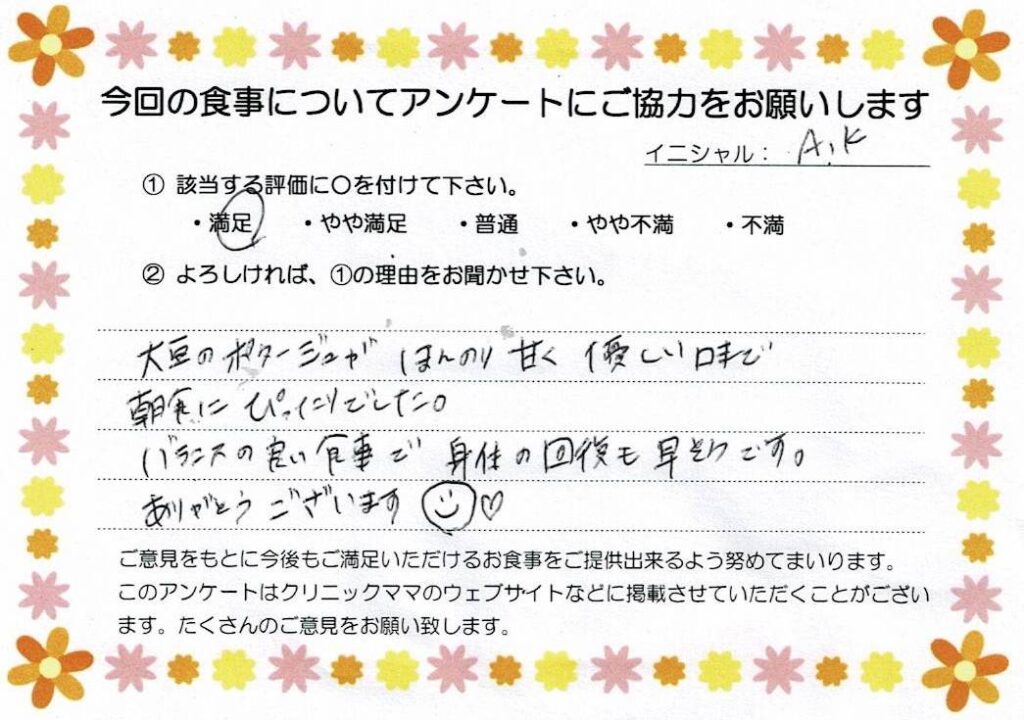 今回の食事についてアンケートにご協力をお願いします
イニシャル： A.K
① 該当する評価に〇を付けて下さい。
・満足 ・やや満足 ・普通 ・やや不満 ・不満
② よろしければ、①の理由をお聞かせ下さい。
大豆のポタージュが ほんのり 甘く 優しい口まで
朝食に ぴったりでした。
バランスの良い食事で 身体の回復も早そうです。
ありがとうございます
ご意見をもとに今後もご満足いただけるお食事をご提供出来るよう努めてまいります。
このアンケートはクリニックママのウェブサイトなどに掲載させていただくことがござい
ます。たくさんのご意見をお願い致します。